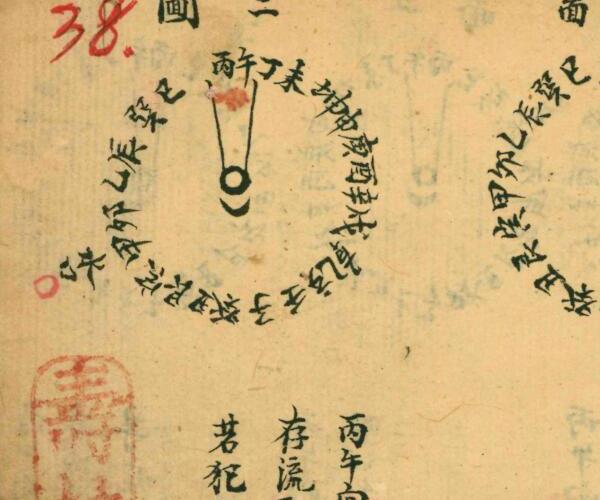 38.
圖
巳巽辰乙卯甲寅艮丑癸
丙午丁未坤申庚酉辛戌乾亥壬子癸丑艮寅甲卯乙辰巽巳
丙午向
存流
若犯
壽